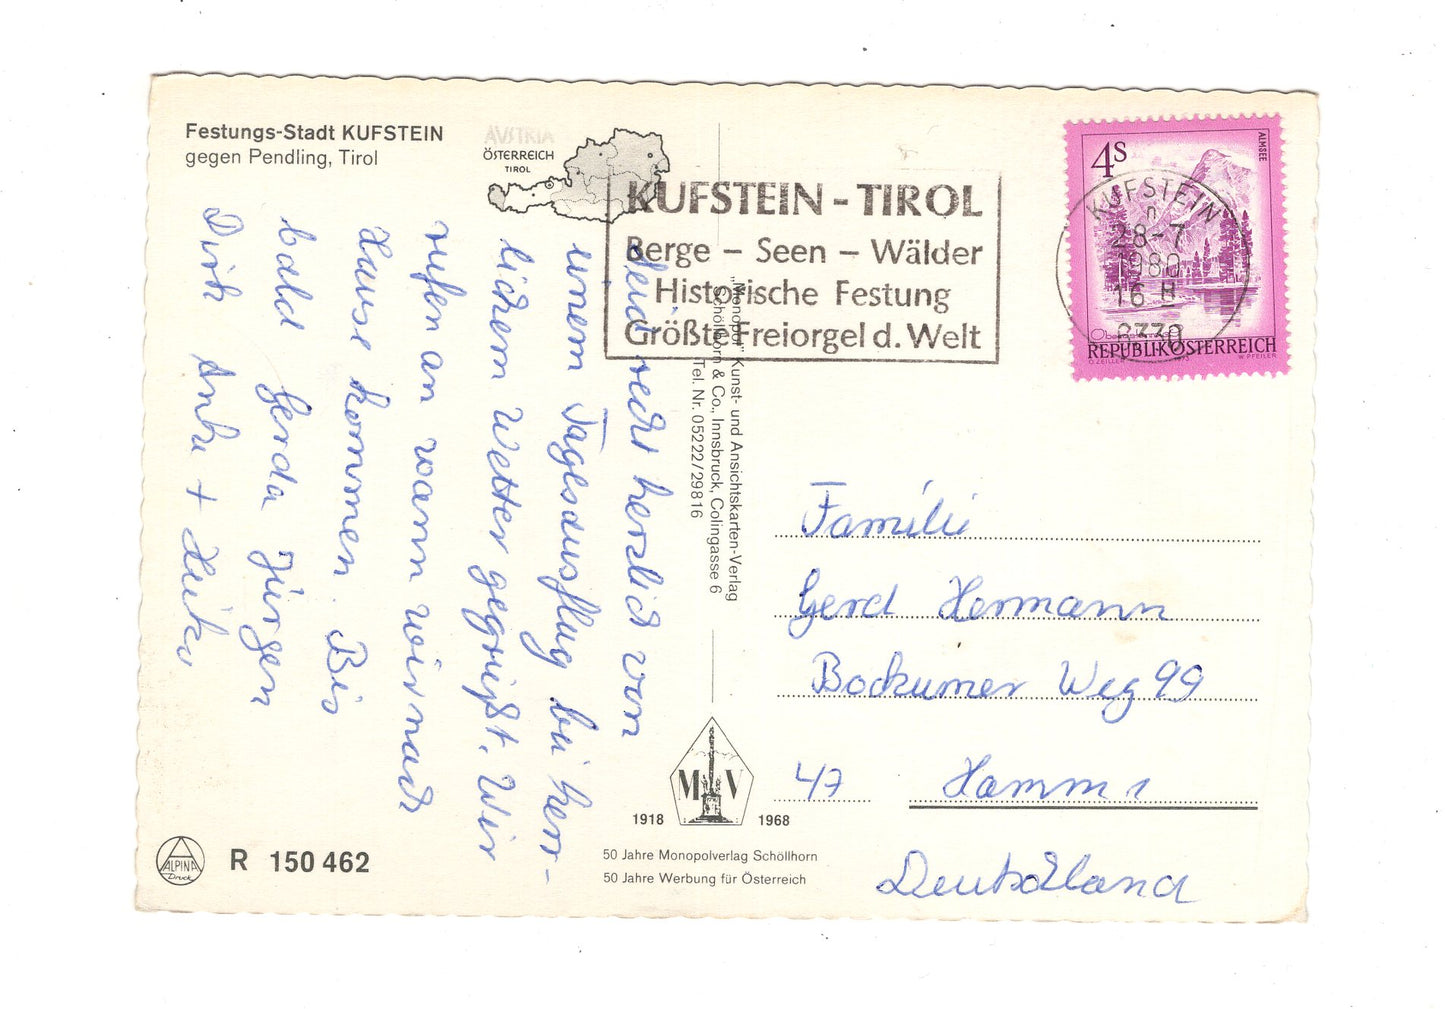 Festungs-Stadt KUFSTEIN
gegen Pendling, Tirol
AUSTRIA
ÖSTERREICH
TIROL
KUFSTEIN - TIROL
Berge - Seen - Wälder
Historische Festung
Größte Freiorgel d. Welt
4S
ALMSEE
REPUBLIK ÖSTERREICH
O. ZEILLER 1973 W. PFEILER
KUFSTEIN
n
28-7
1980
16 H
6330
Seid recht herzlich von
unem Tagesausflug bei herr-
lichem Wetter gegrüßt. Wir
rufen an wann wir nach
Hause kommen. Bis
bald Gerda Jürgen
Dirk Anke + Heike
"Monopol" Kunst- und Ansichtskarten-Verlag
Schöllhorn & Co., Innsbruck, Colingasse 6
Tel. Nr. 05222/29816
Familie
Gerd Hermann
Bockumer Weg 99
47 Hamm 1
Deutschland
M V
1918 1968
50 Jahre Monopolverlag Schöllhorn
50 Jahre Werbung für Österreich
ALPINA
Druck
R 150 462